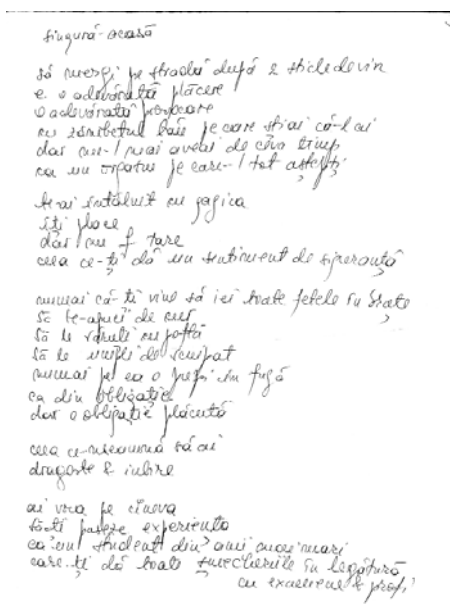 singură-acasă
să mergi pe stradă după 2 sticle de vin
e o adevărată plăcere
o adevărată provocare
cu zâmbetul pe care știai că-l ai
dar nu-l mai aveai de ceva timp
ca un pe care-l tot aștepți
te-ai întâlnit cu gagica
îți place
dar nu f tare
ceea ce-ți dă un sentiment de siguranță
numai că-ți vine să iei toate fetele în brațe
să te-apuci de
să le cu poftă
să le umpli de scuipat
numai pe ea o în fugă
ca din obligație
dar o obligație plăcută
ceea ce-nseamnă să ai
dragoste & iubire
ai vrea pe cineva
să-ți paseze experiența
ca un student din anii mai mari
care-ți dă toate șmecheriile în legătură
cu examene & profi